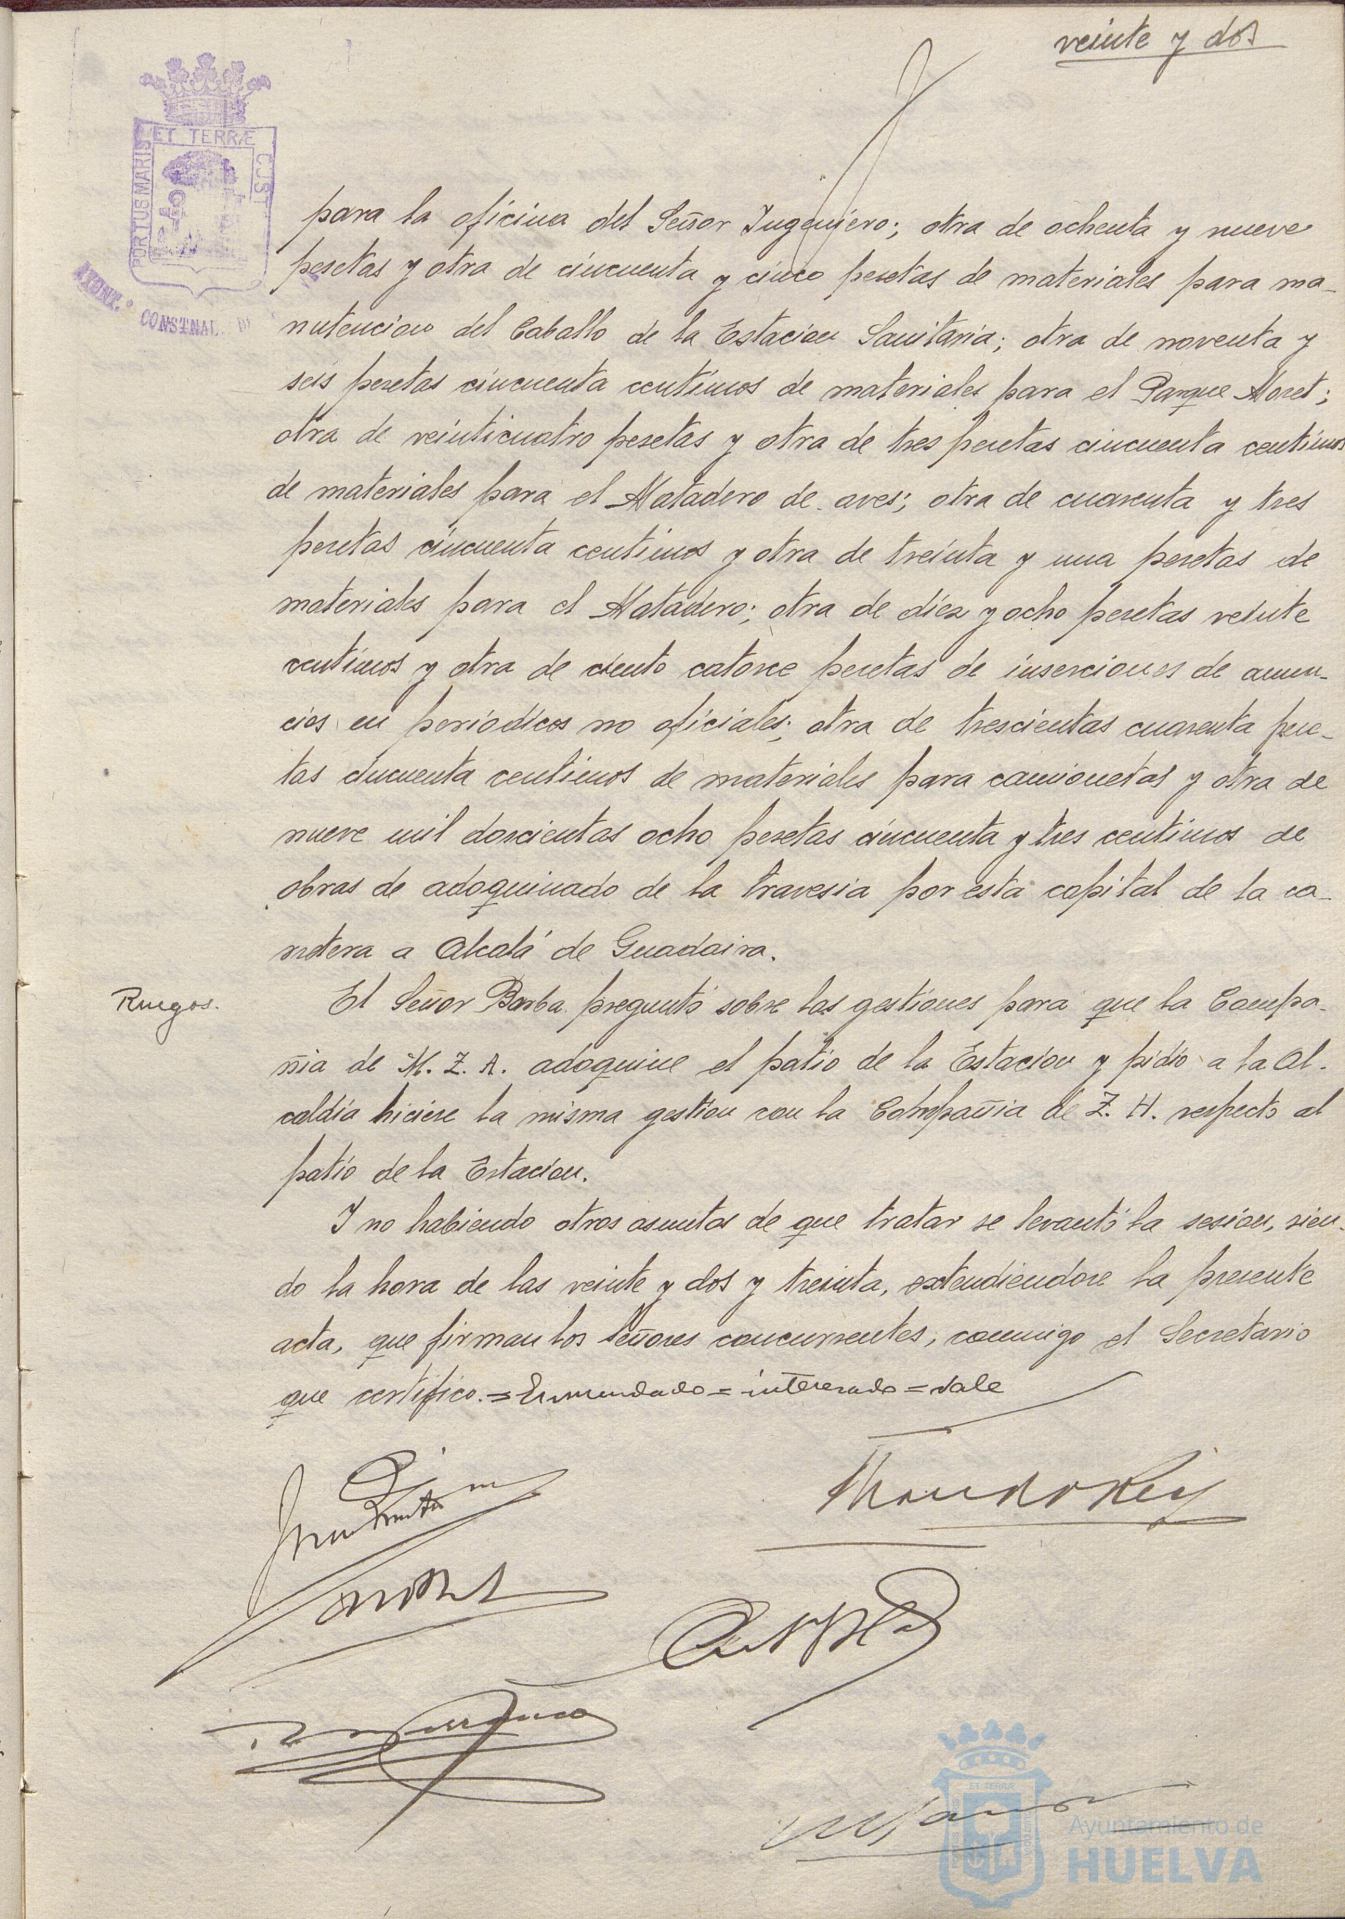 veinte y dos
PORTUS MARIS
ET TERRÆ
CUST
AYUNT.º CONSTNAL. DE
para la oficina del Señor Ingeniero; otra de ochenta y nueve
pesetas y otra de cincuenta y cinco pesetas de materiales para ma-
nutencion del Caballo de la Estacion Sanitaria; otra de noventa y
seis pesetas cincuenta centimos de materiales para el Parque Moret;
otra de veinticuatro pesetas y otra de tres pesetas cincuenta centimos
de materiales para el Matadero de aves; otra de cuarenta y tres
pesetas cincuenta centimos y otra de treinta y una pesetas de
materiales para el Matadero; otra de diez y ocho pesetas veinte
centimos y otra de ciento catorce pesetas de inserciones de anun-
cios en periodicos no oficiales; otra de trescientas cuarenta pese-
tas cincuenta centimos de materiales para camionetas y otra de
nueve mil doscientas ocho pesetas cincuenta y tres centimos de
obras de adoquinado de la travesia por esta capital de la ca-
rretera a Alcalá de Guadaira.
Ruegos.
El Señor Barba preguntó sobre las gestiones para que la Compa-
ñia de M. Z. A. adoquine el patio de la Estacion y pidió a la Al-
caldia hiciese la misma gestion con la Compañia de Z. H. respecto al
patio de la Estacion.
Y no habiendo otros asuntos de que tratar se levantó la sesion, sien-
do la hora de las veinte y dos y treinta, extendiendose la presente
acta, que firman los Señores concurrentes, conmigo el Secretario
que certifico.=Enmendado=interesado=vale
ET TERRÆ
Ayuntamiento de
HUELVA